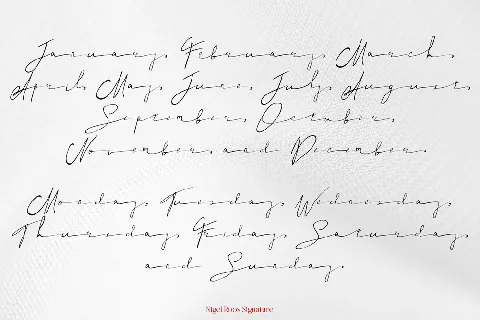 January, February, March,
April, May, June, July, August,
September, October,
November, and December,
Monday, Tuesday, Wednesday,
Thursday, Friday, Saturday,
and Sunday,
Nigel Roos Signature